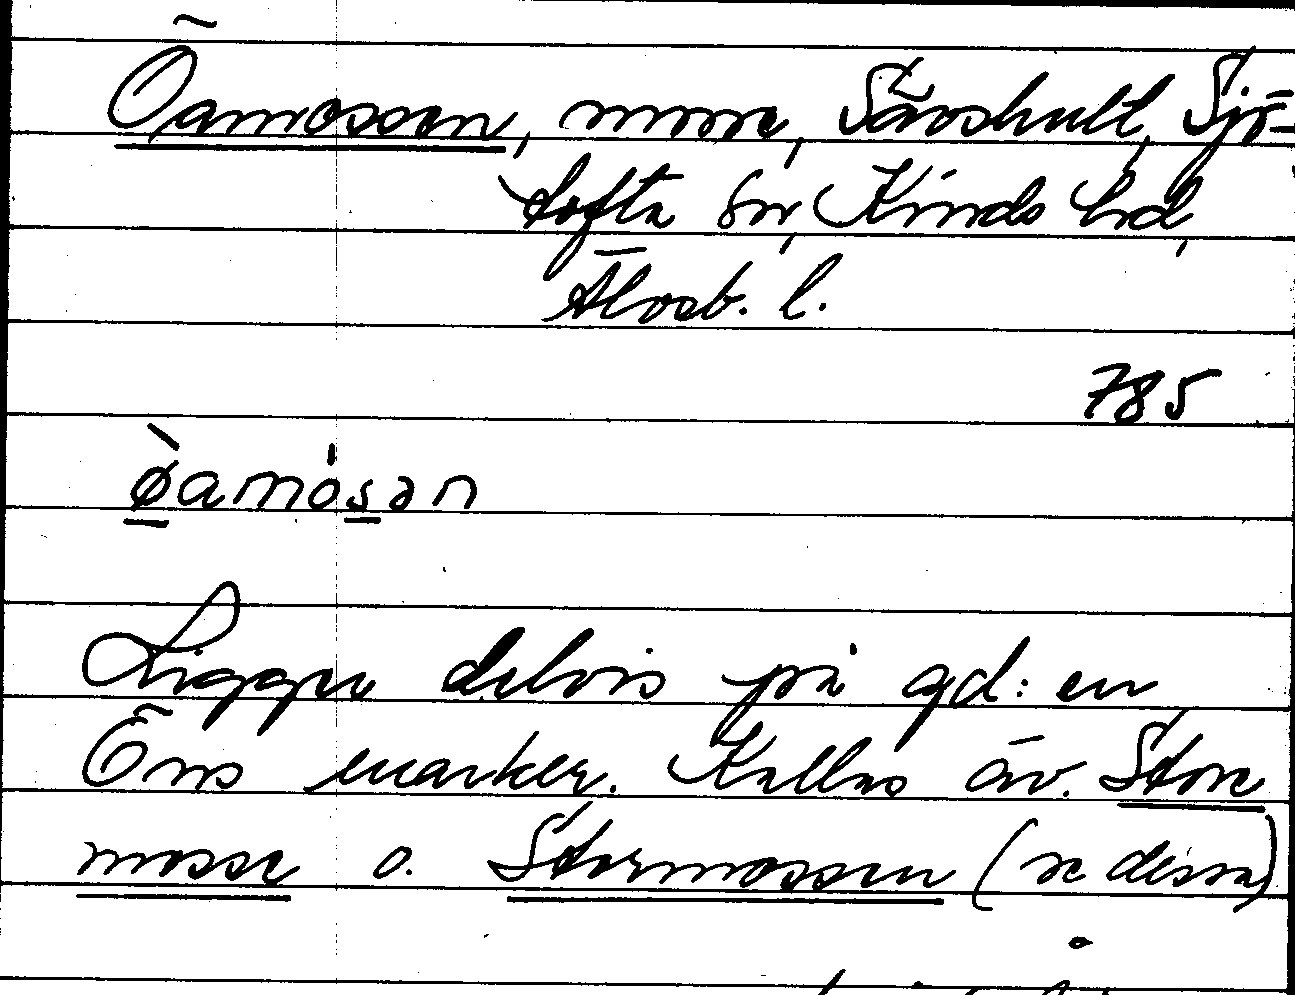 Öamossen, mosse, Sävshult, Sjö-
tofta sn, Kinds hd,
Älvsb. l.
785
ø̀amósən
Ligger delvis på gd:en
Öns marker. Kallas äv. Store
mosse o. Stormossen (se dessa)